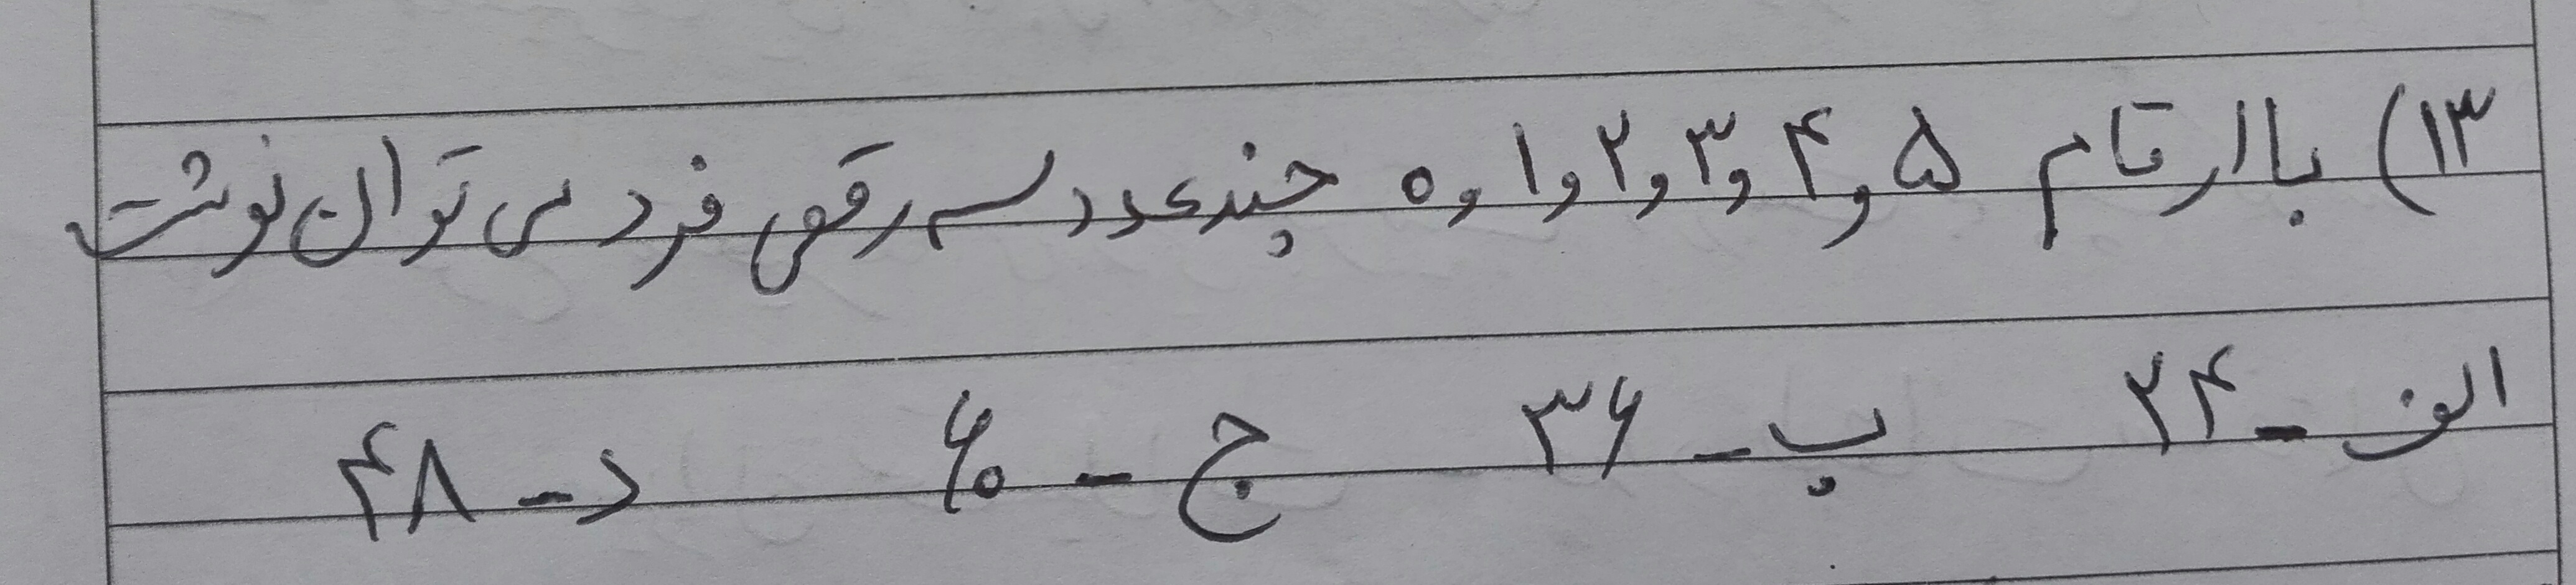 ۱۳) با ارقام ۵ و ۴ و ۳ و ۲ و ۱ و ۰ چند عدد سه رقمی فرد می توان نوشت
الف - ۲۴ ب - ۳۶ ج - ۶۰ د - ۴۸